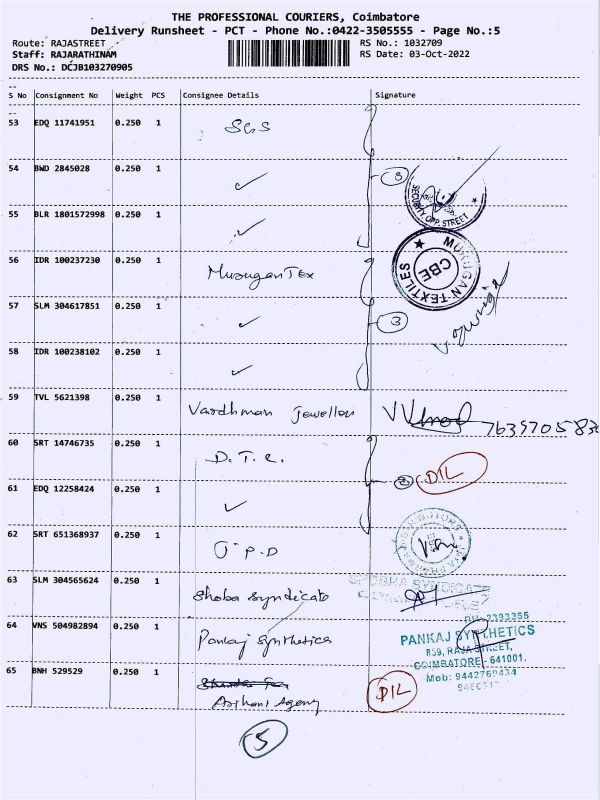 THE PROFESSIONAL COURIERS, Coimbatore
Delivery Runsheet - PCT - Phone No.:0422-3505555 - Page No.:5
Route: RAJASTREET RS No.: 1032709
Staff: RAJARATHINAM RS Date: 03-Oct-2022
DRS No.: DCJB103270905
S No Consignment No Weight PCS Consignee Details Signature
53 EDQ 11741951 0.250 1 SGS
54 BWD 2845028 0.250 1 ✓ 3
SECURITY OPP. STREET
55 BLR 1801572998 0.250 1 ✓
56 IDR 100237230 0.250 1 Murugan Tex
MURUGAN TEXTILES CBE
57 SLM 304617851 0.250 1 ✓ 3
58 IDR 100238102 0.250 1 ✓
59 TVL 5621398 0.250 1 Vardhman Jewellers
60 SRT 14746735 0.250 1 D.T.C.
61 EDQ 12258424 0.250 1 ✓ 2 DIL
62 SRT 651368937 0.250 1 J.P.D
63 SLM 304565624 0.250 1 Shoba Syndicate
SHOBHA SYNDICATE
64 VNS 504982894 0.250 1 Pankaj Synthetics
PH: 2393355
PANKAJ SYNTHETICS
859, RAJA STREET,
COIMBATORE - 641001.
Mob: 9442769434
65 BNH 529529 0.250 1 DIL
Arihant Agency
5